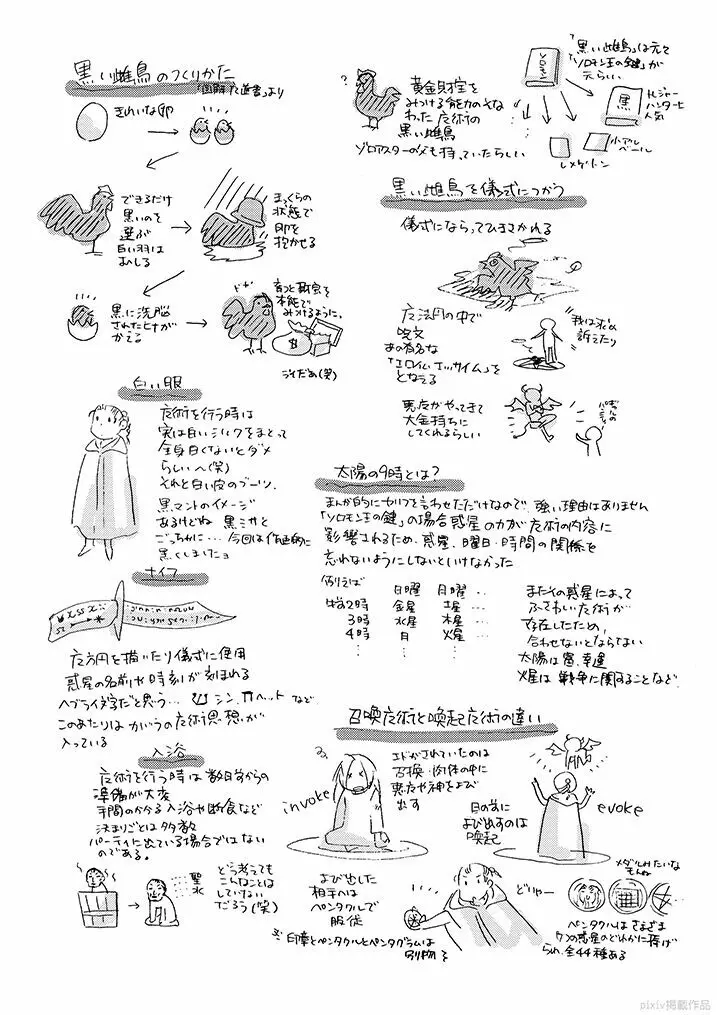 黒い雌鳥のつくりかた
「図解魔道書」より
きれいな卵
できるだけ
黒いのを
選ぶ
白い羽は
むしる
まっくらの
状態で
卵を
抱かせる
黒に洗脳
されたヒナが
かえる
本能で
みつけるように。
ジイだあ(笑)
?
黄金財宝を
みつける能力のそな
わった魔術の
黒い雌鳥
ゾロアスターの父も持っていたらしい
「黒い雌鳥」は元で
「ソロモン王の鍵」が
元らしい
ソロモン
黒
トレジャー
ハンターに
人気
小アル
ベール
レメゲトン
黒い雌鳥を儀式につかう
儀式にならってひきさかれる
魔法円の中で
呪文
あの有名な
「エロイムエッサイム」を
となえる
我は求め
訴えたり
悪魔がやってきて
大金持ちに
してくれるらしい
白い服
魔術を行う時は
実は白いシルクをまとって
全身白くないとダメ
らしいヘ(笑)
それと白い皮のブーツ。
黒マントのイメージ
あるけどね 黒ミサと
ごっちゃに…今回は作画的に
黒くしましたョ
太陽の9時とは?
まんが的にセリフを言わせただけなので、強い理由はありません
「ソロモン王の鍵」の場合惑星の力が魔術の内容に
影響されるため、惑星、曜日・時間の関係を
忘れないようにしないといけなかった
例えば 日曜 月曜 …
2時 金星 土星 …
3時 水星 木星 …
4時 月 火星 …
またその惑星によって
ふさわしい魔術が
存在したため、
合わせないとならない
太陽は富、幸運
火星は戦争に関することなど。
ナイフ
魔方円を描いたり儀式に使用
惑星の名前や時刻が刻まれる
ヘブライ文字だと思う… シン、ヘットなど
このあたりはカバラの魔術思想が
入っている
入浴
魔術を行う時は数日前からの
準備が大変
手間のかかる入浴や断食など
決まりごとは多数
パーティに出ている場合ではない
のである。
聖水
どう考えても
こんなことは
していない
だろう(笑)
召喚魔術と喚起魔術の違い
invoke
エドがされていたのは
召喚・肉体の中に
悪魔や神をよび
出す
目の前に
よび出すのは
喚起
evoke
よび出した
相手へは
ペンタクルで
服従
※印章とペンタクルとペンタグラムは
別物
どりゃー
メダルみたいな
もんね
ペンタクルはさまざま
7つの惑星のどれかに捧げ
られ、全44種ある
pixiv掲載作品